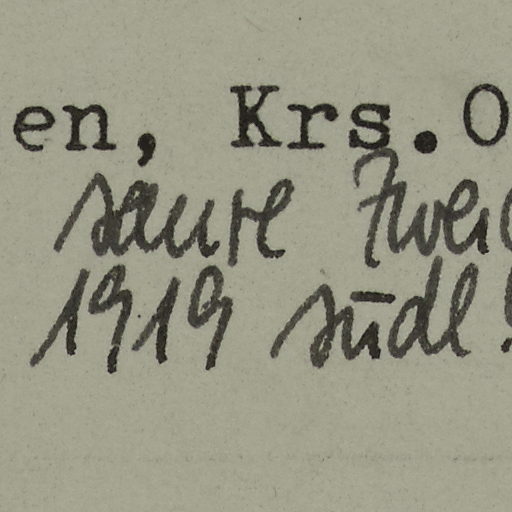 en, Krs.O
saure Zwei
1919 südl